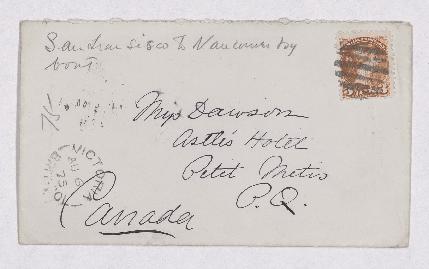 San Francisco to Vancouver by
boat
Miss Dawson
Astle's Hotel
Petit Metis
P.Q.
Canada
VICTORIA
AU 6
75